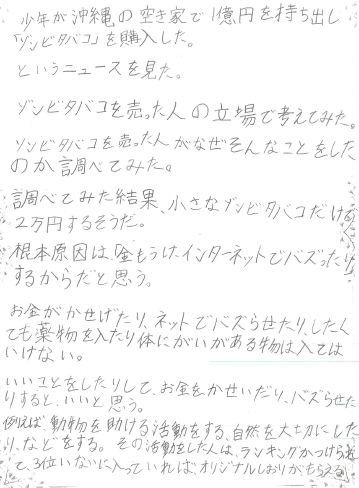 少年が沖縄の空き家で1億円を持ち出し
「ゾンビタバコ」を購入した。
というニュースを見た。
ゾンビタバコを売った人の立場で考えてみた。
ゾンビタバコを売った人がなぜそんなことをした
のか調べてみた。
調べてみた結果、小さなゾンビタバコだけで
2万円するそうだ。
根本原因は、「金もうけ、インターネットでバズったり
するからだと思う。
お金がかせげたり、ネットでバズらせたり、したく
ても薬物を入たり体にがいがある物は入ては
いけない。
いいことをしたりして、お金をかせいだり、バズらせた
りすると、いいと思う。
例えば、動物を助ける活動をする、自然を大切にした
り、などをする。その活動をした人は、ランキングがつけられ
て、3位いないに入っていれば、オリジナルしおりがもらえる。